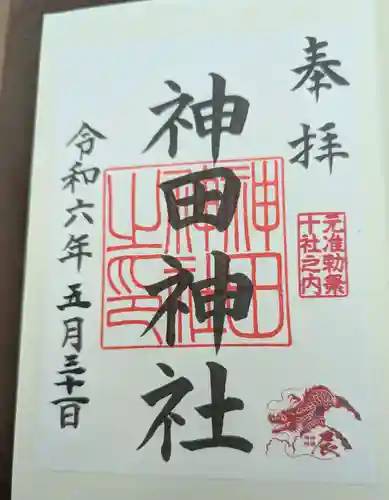 奉拝
元准勅祭
十社之内
辰
神田神社
神田
神社
之印
令和六年五月三十一日